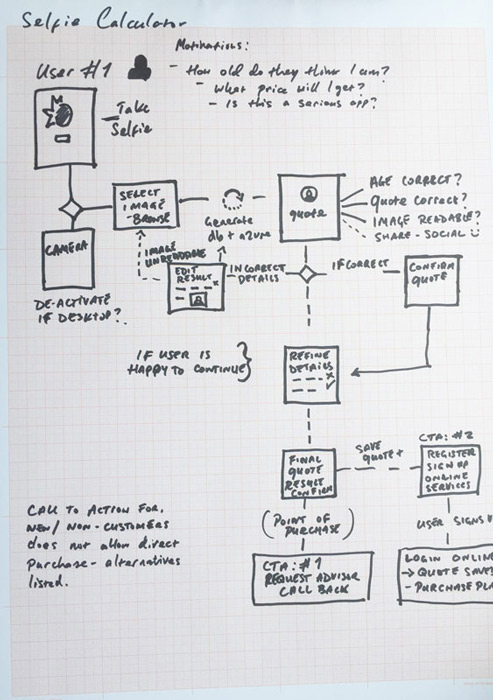 Selfie Calculator
Motivations:
User #1
- How old do they think I am?
- What price will I get?
- Is this a serious app?
- Take
Selfie
SELECT
IMAGE
- BROWSE
Generate
db + azure
QUOTE
AGE CORRECT?
Quote correct?
IMAGE READABLE?
SHARE - SOCIAL
CAMERA
DE-ACTIVATE
IF DESKTOP?
IMAGE
UNREADABLE
EDIT
RESULT
INCORRECT
DETAILS
IF CORRECT
CONFIRM
QUOTE
IF USER IS
HAPPY TO CONTINUE
REFINE
DETAILS
FINAL
QUOTE
RESULT
CONFIRM
SAVE
QUOTE +
CTA: #2
REGISTER
SIGN UP
ONLINE
SERVICES
(POINT OF
PURCHASE)
USER SIGNS
CTA: #1
REQUEST ADVISOR
CALL BACK
LOGIN ONLINE
→ QUOTE SAVE
- PURCHASE PLA
CALL TO ACTION FOR,
NEW/ NON-CUSTOMERS
does not allow direct
Purchase - alternatives
listed.